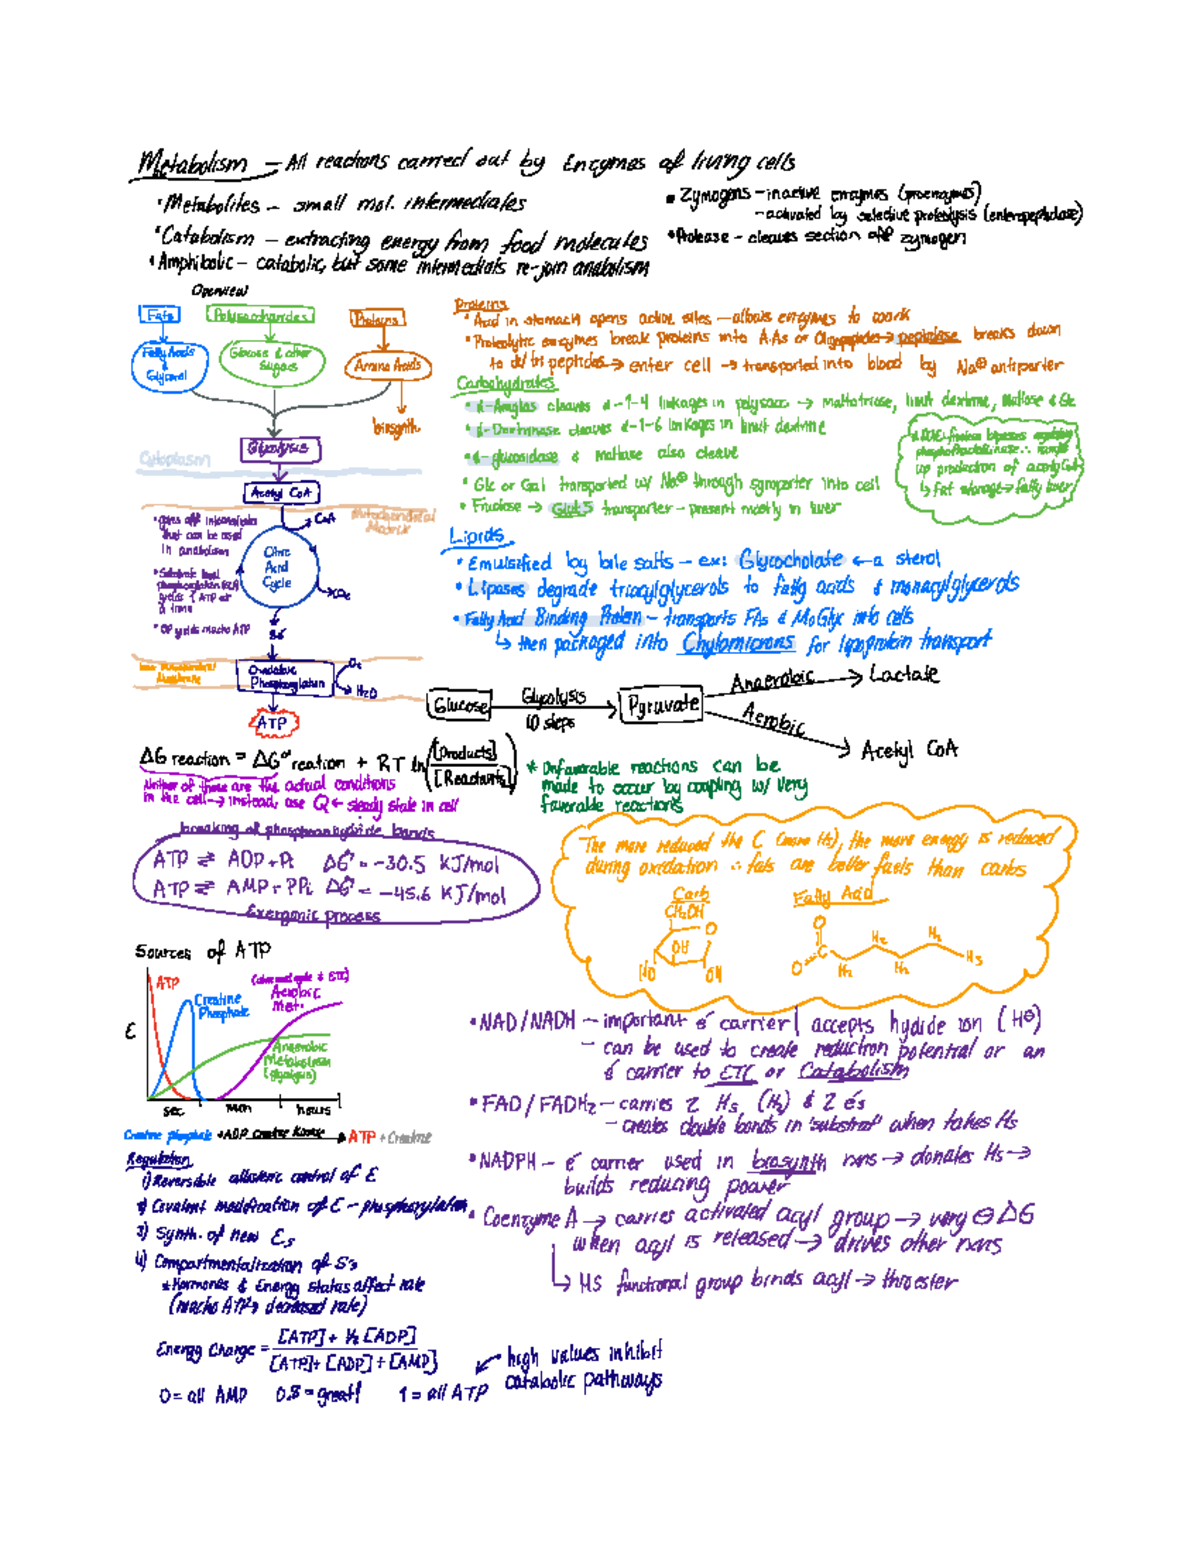 Metabolism – All reactions carried out by Enzymes of living cells
• Metabolites – small mol. intermediates
• Catabolism – extracting energy from food molecules
• Amphibolic – catabolic, but some intermediats re-join anabolism
• Zymogens – inactive enzymes (proenzymes)
– activated by selective proteolysis (enteropeptidase)
• Protease – cleaves section off zymogen
Overview
Fats
Polysaccharides
Proteins
Fatty Acids & Glycerol
Glucose & other Sugars
Amino Acids
biosynth
Glycolysis
Cytoplasm
Acetyl CoA
Mitochondrial Matrix
CoA
• gives off intermediates
that can be used
in anabolism
• Substrate level
phosphorylation
yields 1 ATP at
a time
• OP yields mucho ATP
Citric
Acid
Cycle
8e⁻
Inner Mitochondrial
Membrane
Oxidative
Phosphorylation
O₂
H₂O
ATP
Proteins
• Acid in stomach opens active sites – allows enzymes to work
• Proteolytic enzymes break proteins into A.As or Oligopeptides → peptidase breaks down
to di/tri peptides → enter cell → transported into blood by Na⊕ antiporter
Carbohydrates
• α-Amylas cleaves α-1-4 linkages in polysacc → maltotriose, limit dextrins, Maltose & Glc
• α-Dextrinase cleaves α-1-6 linkages in limit dextrine
• α-glucosidase & maltase also cleave
• Glc or Gal transported w/ Na⊕ through symporter into cell
• Fructose → Glut5 transporter – present mostly in liver
bypasses regulating
phosphofructokinase ∴
up production of acetyl CoA
↳ fat storage → fatty liver
Lipids
• Emulsified by bile salts – ex: Glycocholate ← a sterol
• Lipases degrade triacylglycerols to fatty acids & monacylglycerols
• Fatty Acid Binding Protein – transports FAs & MoGlyc into cells
↳ then packaged into Chylomicrons for lipoprotein transport
Glucose
Glycolysis
10 steps
Pyruvate
Anaerobic
Lactate
Aerobic
Acetyl CoA
ΔG reaction = ΔG°' reation + RT ln([Products]/[Reactants])
Neither of these are the actual conditions
in the cell → instead, use Q ← steady state in cell
* Unfavorable reactions can be
made to occur by coupling w/ very
favorable reactions
breaking of phosphoanhydride bonds
ATP ⇌ ADP + Pi ΔG°' = -30.5 KJ/mol
ATP ⇌ AMP + PPi ΔG°' = -45.6 KJ/mol
Exergonic process
The more reduced the C (more Hs), the more energy is reduced
during oxidation ∴ fats are better fuels than carbs
Carb
Fatty Acid
CH₂OH
O
OH
HO
OH
O
O⁻
C
H₂
H₂
H₂
H₂
H₃
Sources of ATP
ATP
Creatine
Phosphate
Aerobic
Met.
Anaerobic
Metabolism
(glycolysis)
E
sec
min
hours
Creatine phosphate + ADP Creatine Kinase → ATP + Creatine
Regulation
1) Reversible allosteric control of E
2) Covalent modification of E – phosphorylation
3) Synth. of new Es
4) Compartmentalization of S's
* Hormones & Energy status affect rate
(mucho ATP → decreased rate)
Energy Charge = [ATP] + ½ [ADP] / [ATP] + [ADP] + [AMP]
high values inhibit
catabolic pathways
0 = all AMP 0.8 = great! 1 = all ATP
• NAD/NADH – important e⁻ carrier | accepts hydride ion (H⊖)
– can be used to create reduction potential or an
e⁻ carrier to ETC or Catabolism
• FAD/FADH₂ – carries 2 Hs (H₂) & 2 e⁻s
– creates double bonds in "substrat" when takes Hs
• NADPH – e⁻ carrier used in biosynth rxns → donates Hs →
builds reducing power
• Coenzyme A → carries activated acyl group → very ⊖ ΔG
when acyl is released → drives other rxns
↳ HS functional group binds acyl → thioester